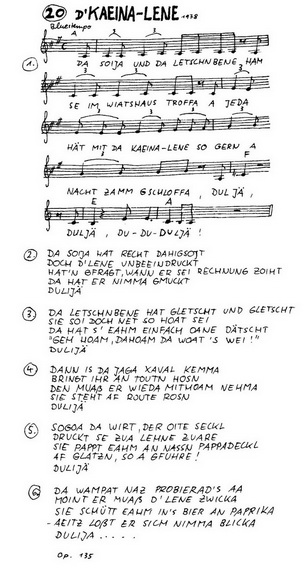 20 D'KAEINA-LENE -178
Bluestempo
A
3 3 3
1. DA SOIJA UND DA LETSCHNBENE, HAM
SE IM WIATSHAUS TROFFA A JEDA
HÄT MIT DA KAEINA-LENE SO GERN A
A F
NACHT ZAMM GSCHLOFFA, DULJÄ,
E A
DULJÄ, DU-DU-DULJÄ!
2 DA SOIJA HAT RECHT DAHIGSOTT
DOCH D'LENE UNBEEINDRUCKT
HAT'N GFRAGT, WANN ER SEI RECHNUNG ZOIHT
DA HAT ER NIMMA GMUCKT
DULIJÄ
3 DA LETSCHNBENE HAT GLETSCHT UND GLETSCHT
SIE SOI DOCH NET SO HOAT SEI
DA HAT S' EAHM EINFACH OANE DÄTSCHT
"GEH HOAM, DAHOAM DA WOAT 'S WEI!"
DULIJÄ
4 DANN IS DA JAGA XAVAL KEMMA
BRINGT IHR AN TOUTN HOSN
DEN MUAẞ ER WIEDA MITHOAM NEHMA
SIE STEHT AF ROUTE ROSN
DULIJÄ
5. SOGOA DA WIRT, DER OITE SECKL
DRUCKT SE ZUA LEHNE ZUARE
SIE PAPPT EAHM AN NASSN PAPPADECKL
AF GLATZN, SO A GFUHRE!
DULIJÄ
6 DA WAMPAT NAZ PROBIERAD'S AA
MOINT ER MUAẞ D'LENE ZWICKA
SIE SCHÜTT EAHM IN'S BIER AN PAPRIKA
- AEITZ LOẞT ER SICH NIMMA BLICKA
DULIJA.....
Op. 135